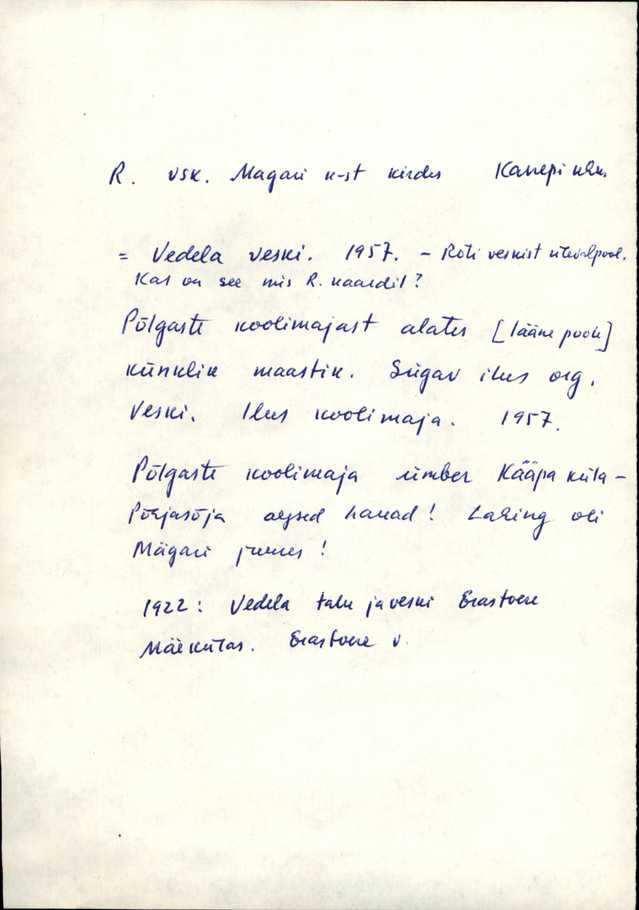 R. vsk. Magari k-st kirdes Kanepi khk.
= Vedela veski. 1957. – Roti veskist ülevalpool.
Kas on see mis R. kaardil?
Põlgaste koolimajast alates [lääne poole]
künklik maastik. Sügav ilus org.
Veski. Ilus koolimaja. 1957.
Põlgaste koolimaja ümber Kääpa küla –
Põhjasõja aegsed hauad! Lahing oli
Mägari juures!
1922: Vedela talu ja veski Erastvere
Mäekülas. Erastvere v.